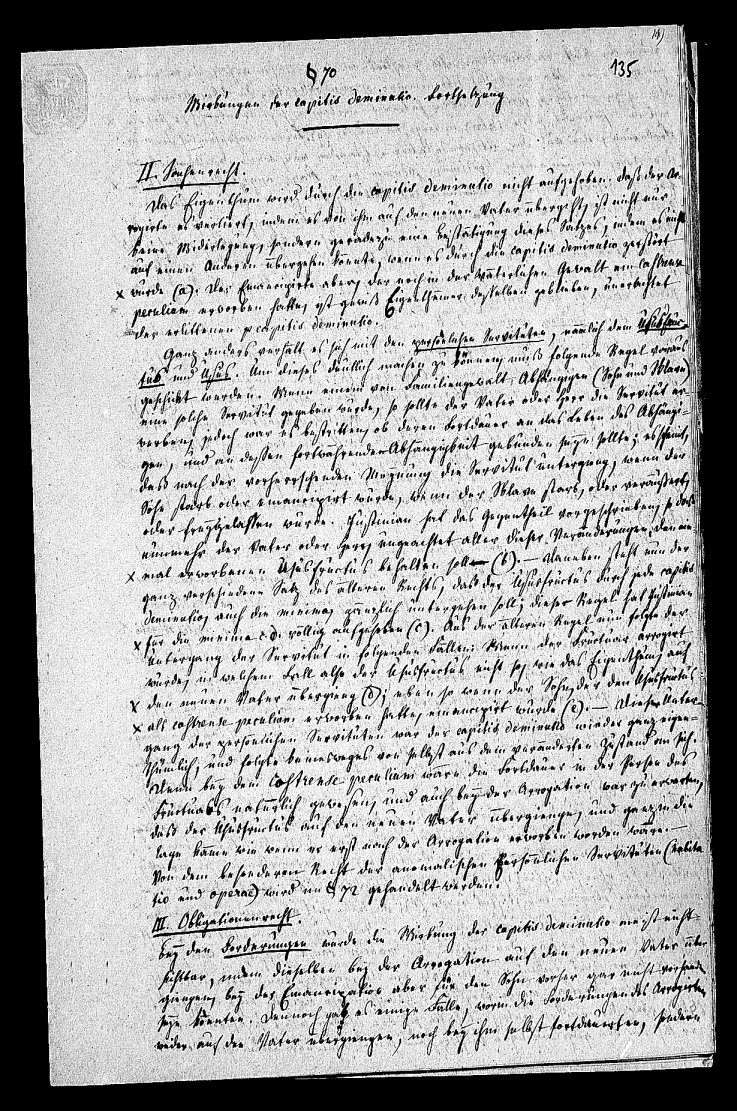 § 70
135
Wirkungen der capitis deminutio. Fortsetzung
II. Sachenrecht.
Das Eigenthum wird durch die capitis deminutio nicht aufgehoben. Daß der Ar-
rogirte es verliert, indem es von ihm auf den neuen Vater übergeht, ist nicht nur
keine Widerlegung, sondern geradezu eine Bestätigung dieses Satzes, indem es nicht
auf einen Anderen übergehen könnte, wenn es durch die capitis deminutio zerstört
x würde (a). Der Emancipirte aber, der noch in der väterlichen Gewalt ein castrense
peculium erworben hatte, ist gewiß Eigenthümer desselben geblieben, unerachtet
der erlittenen capitis deminutio.
Ganz anders verhält es sich mit den persönlichen Servituten, nämlich dem Ususfruc-
tus und Usus. Um dieses deutlich machen zu können, muß folgende Regel voraus
geschickt werden. Wenn einem von Familiengewalt Abhängigen (Sohn und Sklave)
eine solche Servitut gegeben wurde, so sollte der Vater oder Herr die Servitut er-
werben; jedoch war es bestritten, ob deren Fortdauer an das Leben des Abhängi-
gen, und an dessen fortwährende Abhängigkeit gebunden seyn sollte; es scheint,
daß nach der vorherrschenden Meynung die Servitut unterging, wenn der
Sohn starb oder emancipirt wurde, wenn der Sklave starb, oder veräußert,
oder freygelassen wurde. Justinian hat das Gegentheil vorgeschrieben, so daß
nunmehr der Vater oder Herr, ungeachtet aller dieser Veränderungen, den ein-
x mal erworbenen Ususfructus behalten soll (b). — Daneben steht nun der
ganz verschiedene Satz des älteren Rechts, daß der Ususfructus durch jede capitis
deminutio, auch die minima, gänzlich untergehen soll; diese Regel hat Justinian
x für die minima c. d. völlig aufgehoben (c). Aus der älteren Regel nun folgte der
Untergang der Servitut in folgenden Fällen: Wenn der Fructuar arrogirt
wurde, in welchem Fall also der Ususfructus nicht so, wie das Eigenthum, auf
x den neuen Vater überging (d); eben so wenn der Sohn, der den Ususfructus
x als castrense peculium erworben hatte, emancipirt wurde (e). — Dieser Unter-
gang der persönlichen Servituten war der capitis deminutio wieder ganz eigen-
thümlich, und folgte keinesweges von selbst aus dem veränderten Zustand an sich.
Denn bey dem castrense peculium wäre die Fortdauer in der Person des
Fructuars natürlich gewesen, und auch bey der Arrogation war zu erwarten,
daß der Ususfructus auf den neuen Vater übergienge, und ganz in die
Lage käme wie wenn er erst nach der Arrogation erworben worden wäre. —
Von dem besonderen Recht der anomalischen persönlichen Servituten (habita
tio und operae) wird im § 72 gehandelt werden.
III. Obligationenrecht.
Bey den Forderungen wurde die Wirkung der capitis deminutio meist nicht
sichtbar, indem dieselben bey der Arrogation auf den neuen Vater über
giengen, bey der Emancipation aber für den Sohn vorher gar nicht vorhanden
seyn konnten. Dennoch gab es einige Fälle, worin die Forderungen des Arrogirten
weder auf den Vater übergiengen, noch bey ihm selbst fortdauerten, sondern